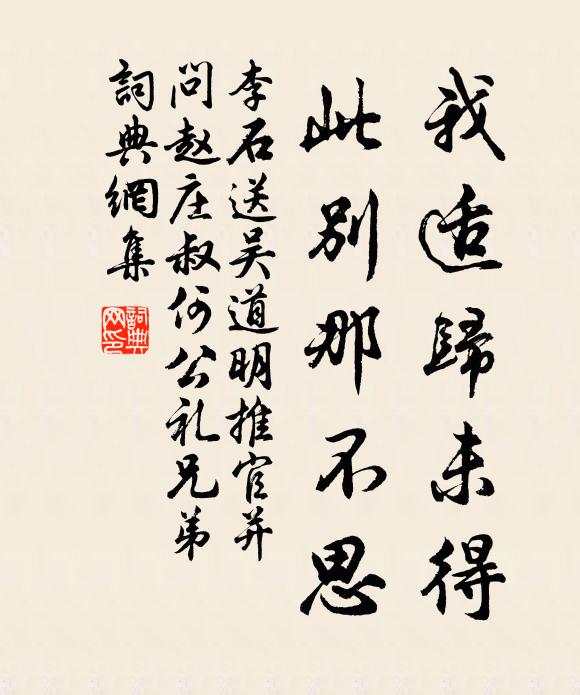 我适歸未得
此別那不思
李石送吴道明推官并
问赵庄叔何公礼兄弟
詞典網集
詞典网印